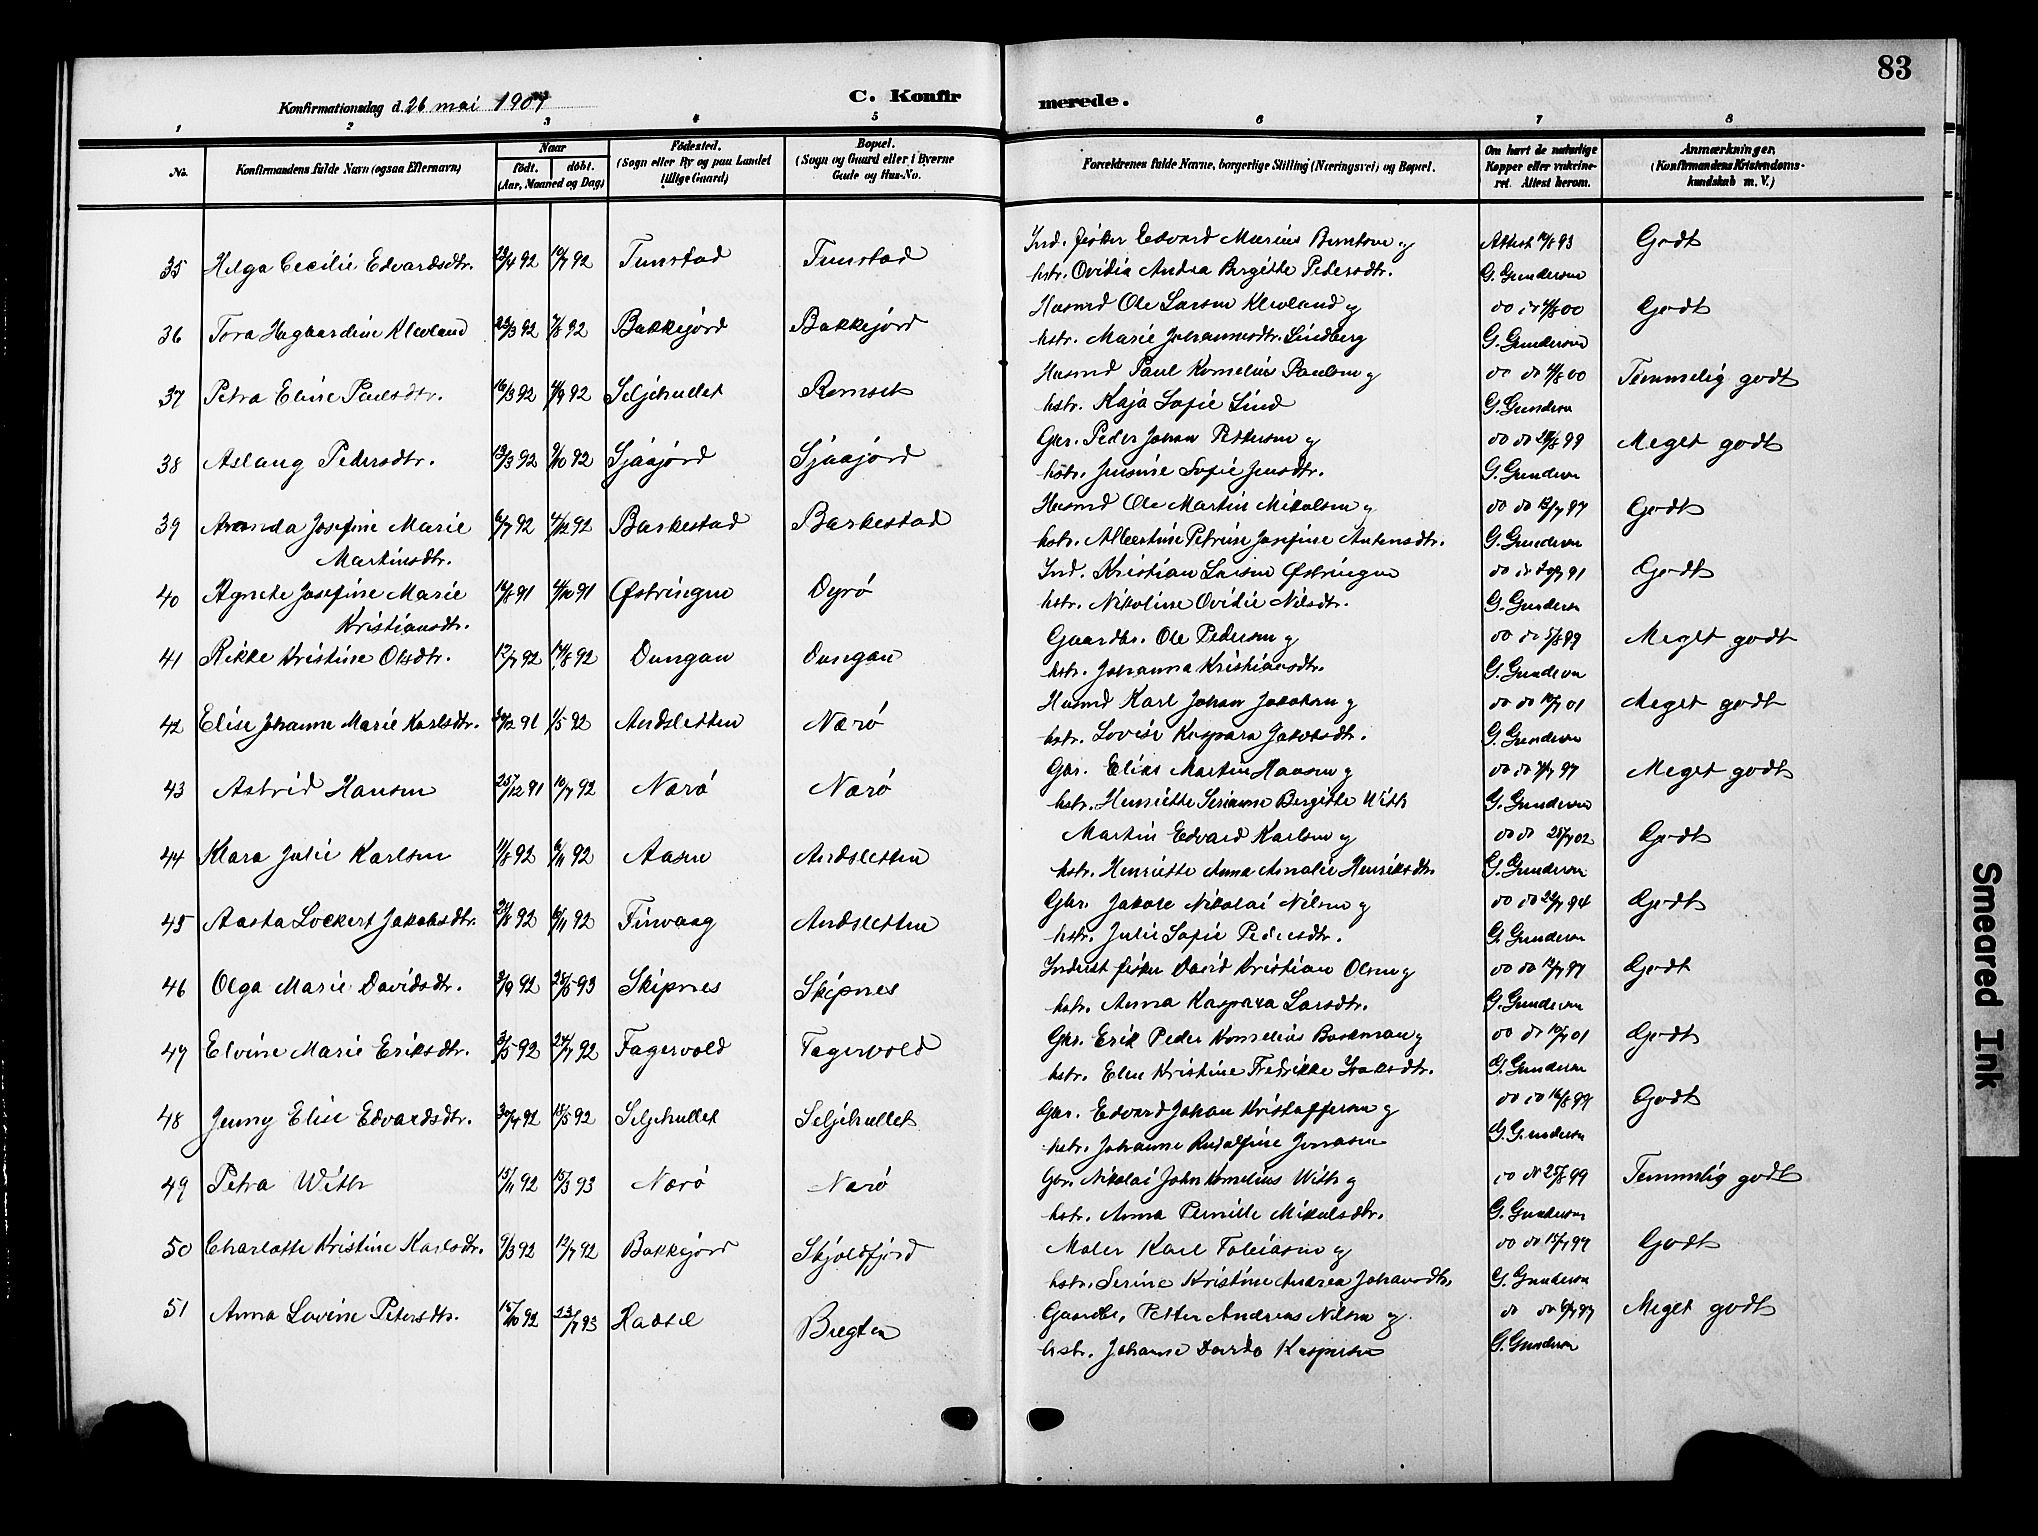 83
Konfirmationsdag d. 26 mai 1907
C. Konfirmerede.
1 2 3 4 5 6 7 8
No. Konfirmandens fulde Navn (ogsaa Efternavn) Naar födt. döbt. (Aar, Maaned og Dag) Födested. (Sogn eller By og paa Landet tillige Gaard) Bopæl. (Sogn og Gaard eller i Byerne Gade og Hus-No. Forældrenes fulde Navne, borgerlige Stilling (Næringsvei) og Bopæl. Om havt de naturlige Kopper eller vakcineret. Attest herom. Anmærkninger. (Konfirmandens Kristendomskundskab m. V.)
35 Helga Cecilie Edvardsdtr. 23/4 92 10/7 92 Tunstad Tunstad Ind. fisker Edvard Marius Berntsen og Attest 10/8 93 Godt
hstr. Ovidia Andrea Bergitte Pedersdtr. G. Gundersen
36 Tora Hagbardine Klevland 22/3 92 7/8 92 Bakkejord Bakkejord Husmd Ole Larsen Klevland og do do 4/8 00 Godt
hstr. Marie Johannesdtr. Lindberg G. Gundersen
37 Petra Elise Paulsdtr. 16/3 92 4/9 92 Seljehullet Romset Husmd Paul Kornelius Paulsen og do do 4/8 00 Temmelig godt
hstr. Kaja Sofie Lind G. Gundersen
38 Aslaug Pedersdtr. 13/3 92 9/10 92 Sjaajord Sjaajord Gbr. Peder Johan Pettersen og do do 28/8 99 Meget godt
hstr. Jensine Sofie Jensdtr. G. Gundersen
39 Amanda Josefine Marie 6/7 92 4/12 92 Barkestad Barkestad Husmd Ole Martin Mikalsen og do do 12/7 97 Godt
Martinsdtr. hstr. Albertine Petrine Josefine Antonsdtr. G. Gundersen
40 Agnete Josefine Marie 10/8 91 4/10 91 Østringen Dyrö Ind. Kristian Larsen Østringen do do 20/9 91 Godt
Kristiansdtr. hstr. Nikoline Ovidie Nilsdtr. G. Gundersen
41 Rikke Kristine Olsdtr. 12/7 92 14/8 92 Dungan Dungan Gaardbr. Ole Pedersen og do do 5/8 99 Meget godt
hstr. Johanna Kristiansdtr. G. Gundersen
42 Elise Johanne Marie Karlsdtr. 30/12 91 1/5 92 Andsletten Nærö Husmd Karl Johan Jakobsen og do do 10/7 01 Meget godt
hstr. Lovise Kaspara Jakobsdtr. G. Gundersen
43 Astrid Hansen 25/12 91 10/7 92 Nærö Nærö Gbr. Elias Martin Hansen og do do 7/7 97 Meget godt
hstr. Henriette Serianne Bergitte With G. Gundersen
44 Klara Julie Karlsen 11/8 92 6/11 92 Aasen Andsletten Martin Edvard Karlsen og do do 25/7 02 Godt
hstr. Henriette Anna Amalie Henriksdtr. G. Gundersen
45 Aasta Lockert Jakobsdtr. 21/8 92 6/11 92 Finvaag Andsletten Gbr. Jakob Nikolai Nilsen og do do 26/7 94 Godt
hstr. Julie Sofie Pedersdtr. G. Gundersen
46 Olga Marie Davidsdtr. 3/9 92 28/5 93 Skipnes Skipnes Inderst fisker David Kristian Olsen og do do 12/7 97 Godt
hstr. Anna Kaspara Larsdtr. G. Gundersen
49 Elvine Marie Eriksdtr. 3/5 92 24/7 92 Fagervold Fagervold Gbr. Erik Peder Kornelius Bockman og do do 10/7 01 Godt
hstr. Elen Kristine Fredrikke Isaksdtr. G. Gundersen
48 Jenny Elise Edvardsdtr. 30/4 92 15/5 92 Seljehullet Seljehullet Gbr. Edvard Johan Kristoffersen og do do 16/8 99 Godt
hstr. Johanne Rudolfine Jonasen G. Gundersen
49 Petra With 15/11 92 15/3 93 Nærö Nærö Gbr. Nikolai John Kornelius With og do do 25/8 99 Temmelig godt
hstr. Anna Pernille Mikalsdtr. G. Gundersen
50 Charlotte Kristine Karlsdtr. 9/3 92 12/7 92 Bakkejord Skjoldfjord Maler Karl Tobiasen og do do 15/7 99 Godt
hstr. Serine Kristine Andrea Johansdtr. G. Gundersen
51 Anna Lovise Petersdtr. 15/10 92 23/7 93 Hadsel Bregten Gaardbr. Petter Andreas Nilsen og do do 6/7 97 Meget godt
hstr. Johanne Dorde Kaspersen G. Gundersen
Smeared Ink